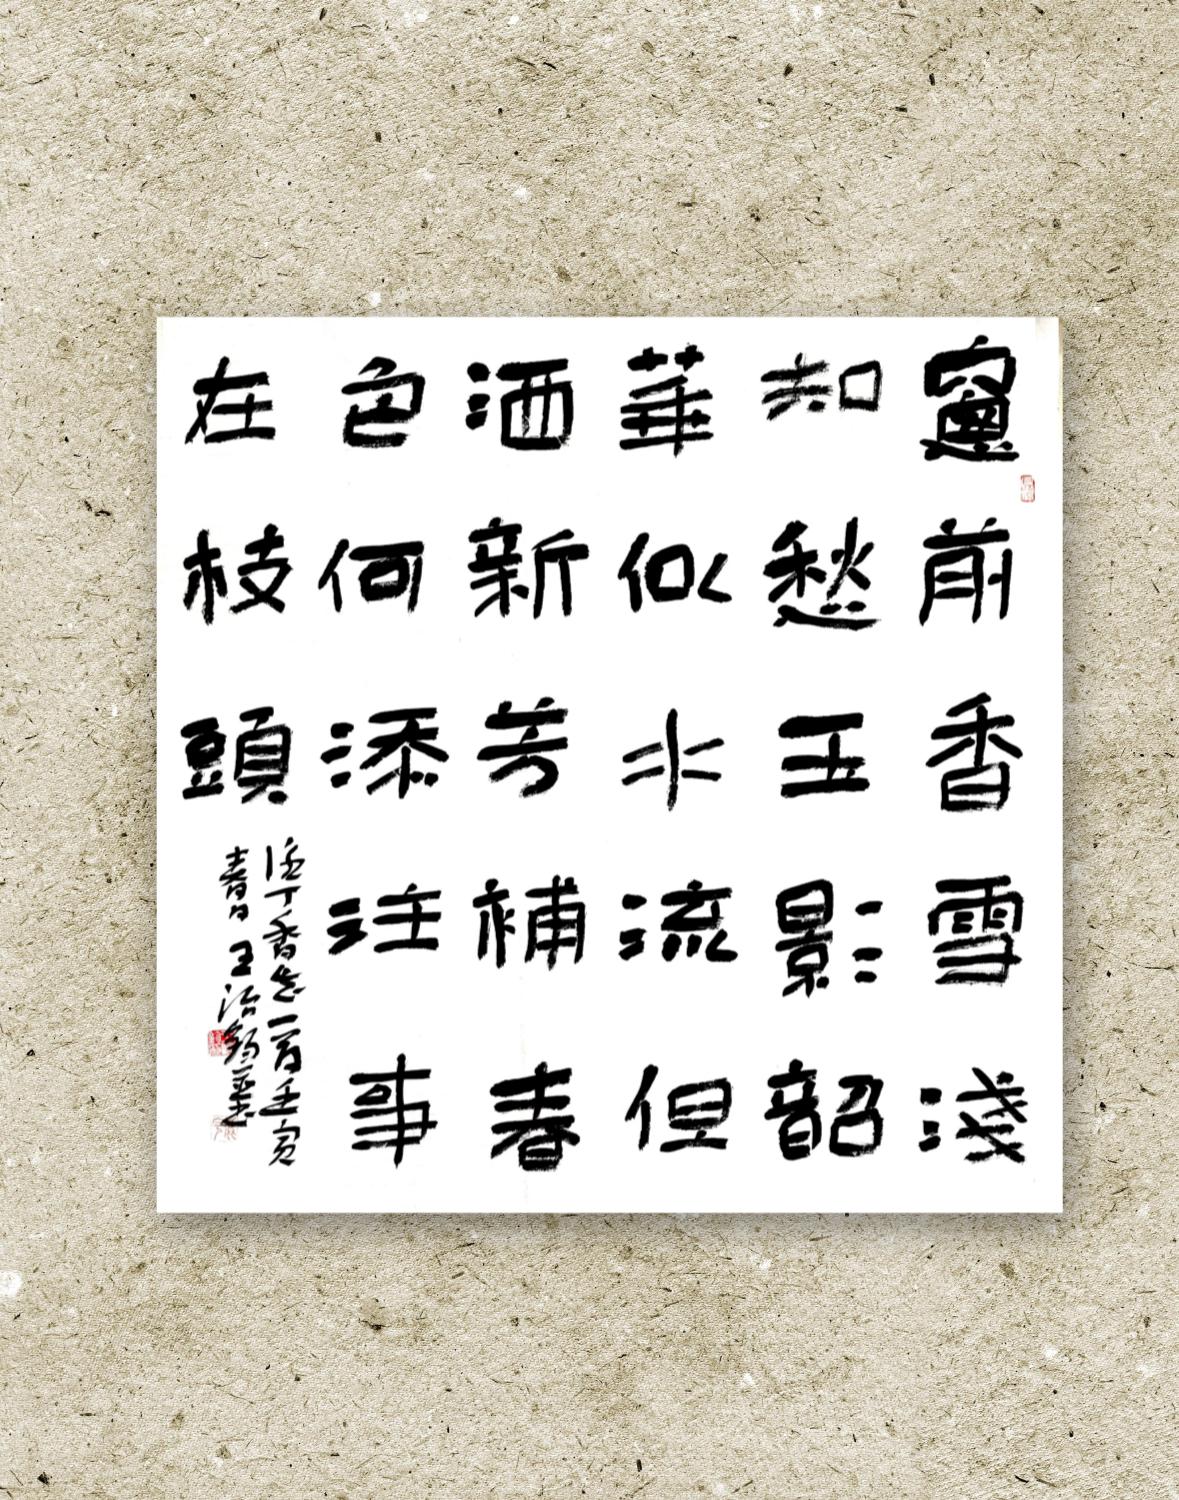 窗前香雪淺
知愁玉影韶
華似水流但
洒新芳補春
色何添注事
在枝頭
丁香
一首壬寅
春日王治